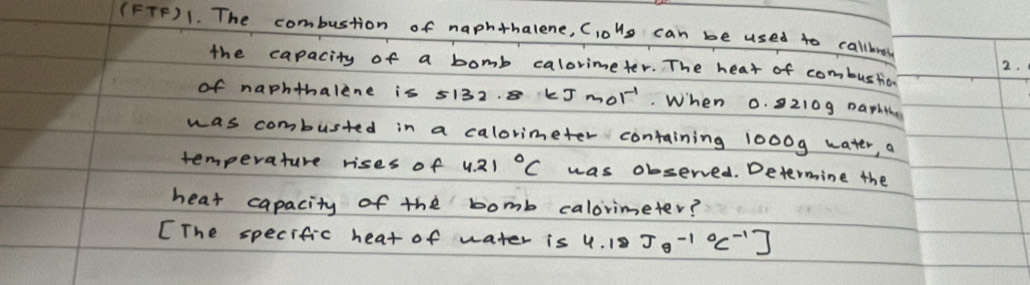 (FTF) 1. The combustion of naphthalene, C10H8 can be used to
the capacity of a bomb calorimeter. The heat of combustion
2.
of naphthalene is 5132.8 kJ mol-1. When 0.8210g
was combusted in a calorimeter containing 1000g water, a
temperature rises of 4.21 °C was observed. Determine the
heat capacity of the bomb calorimeter?
[The specific heat of water is 4.18 Jg-1 °C-1]